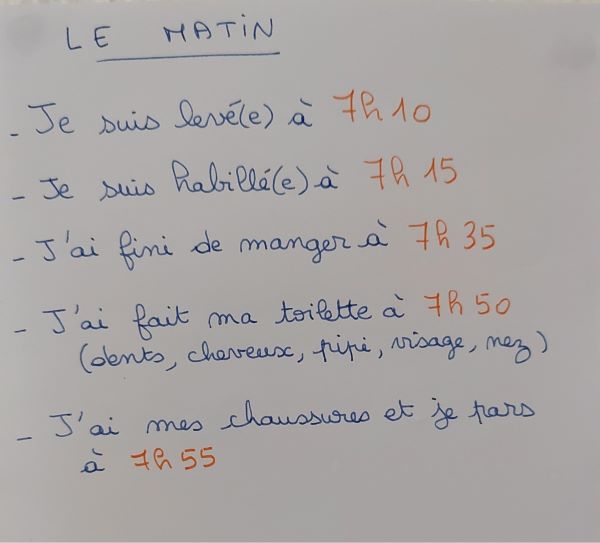 LE MATIN
- Je suis levé(e) à 7h10
- Je suis habillé(e) à 7h15
- J'ai fini de manger à 7h35
- J'ai fait ma toilette à 7h50
(dents, cheveux, pipi, visage, nez)
- J'ai mes chaussures et je pars
à 7h55